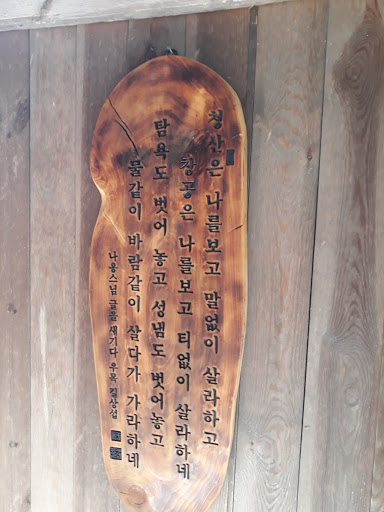 청산은 나를보고 말없이 살라하고
창공은 나를보고 티없이 살라하네
탐욕도 벗어 놓고 성냄도 벗어놓고
물같이 바람같이 살다가 가라하네
나옹스님 글을 새기다 우목 길상섭